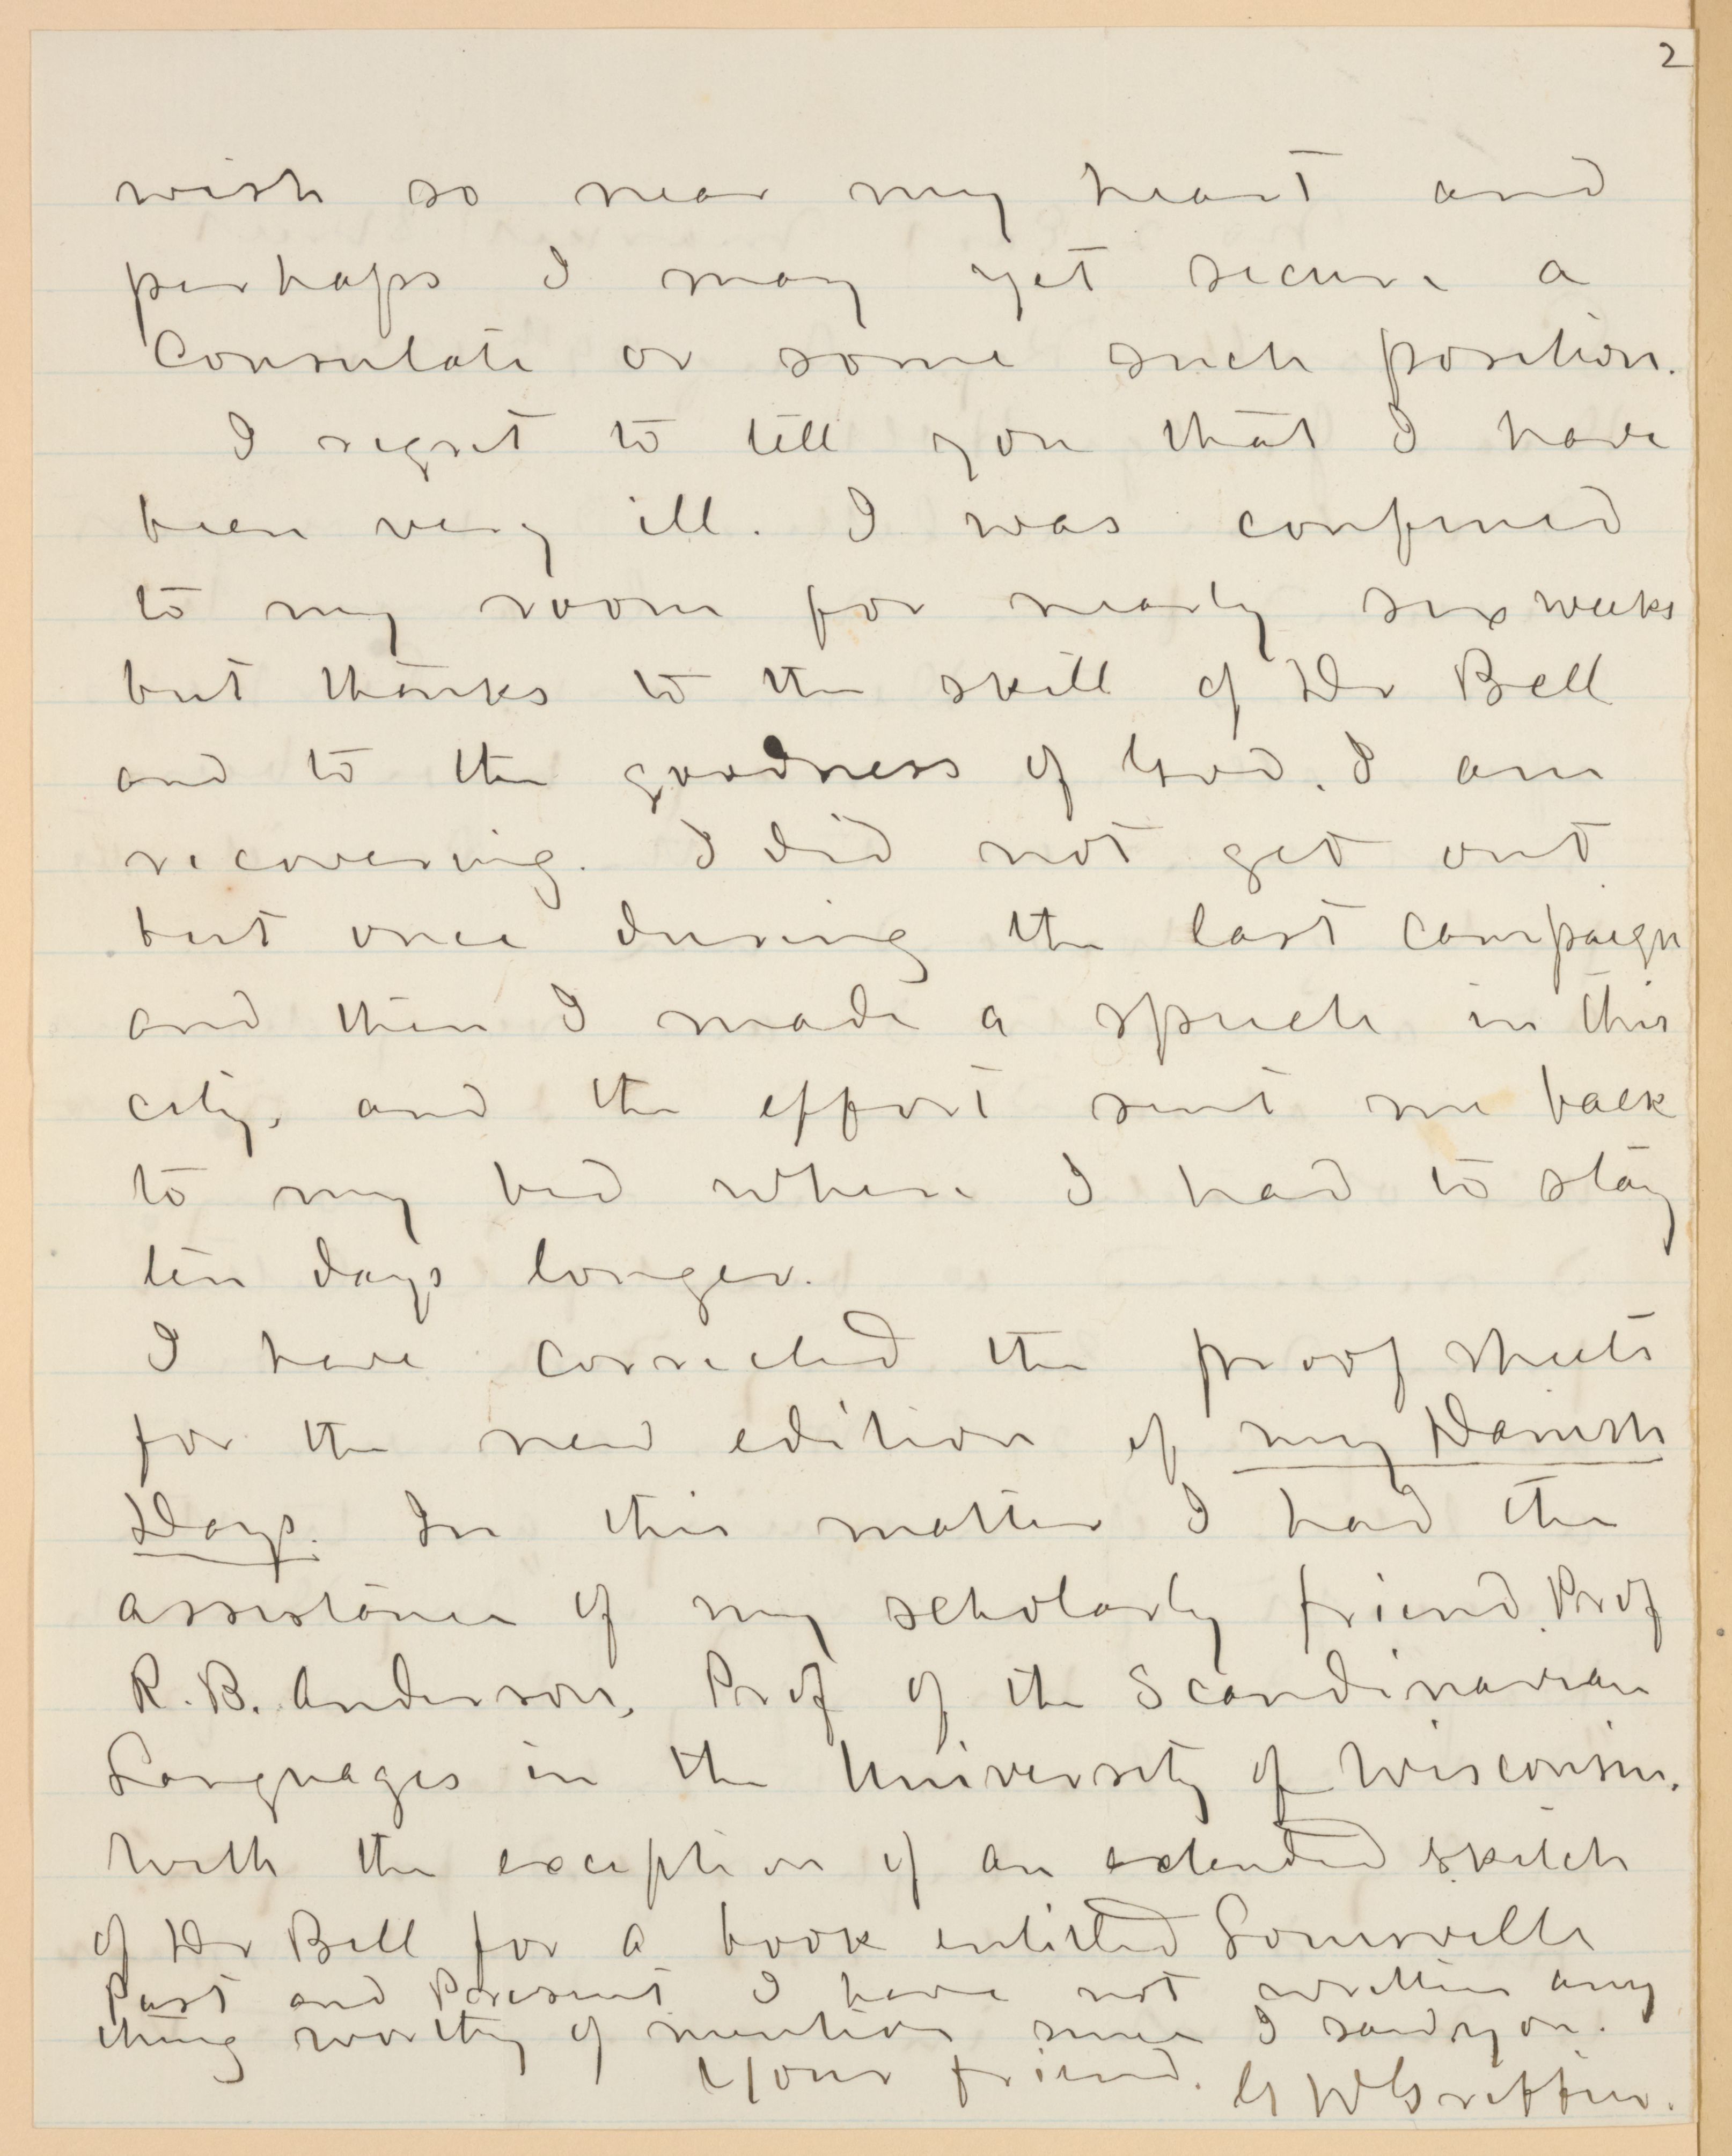 2
wish so near my heart and
perhaps I may yet secure a
Consulate or some such position.
I regret to tell you that I have
been very ill. I was confined
to my room for nearly six weeks
but thanks to the skill of Dr Bell
and to the goodness of God, I am
recovering. I did not get out
but once during the last campaign
and then I made a speech in this
city, and the effort sent me back
to my bed where I had to stay
ten days longer.
I have corrected the proof sheets
for the new edition of my Danish
Days. In this matter I had the
assistance of my scholarly friend, Prof
R. B. Anderson, Prof of the Scandinavian
Languages in the University of Wisconsin.
With the exception of an extended sketch
of Dr Bell for a book entitled Louisville
Past and Present I have not written any
thing worthy of mention since I saw you.
Your friend. G W Griffin.